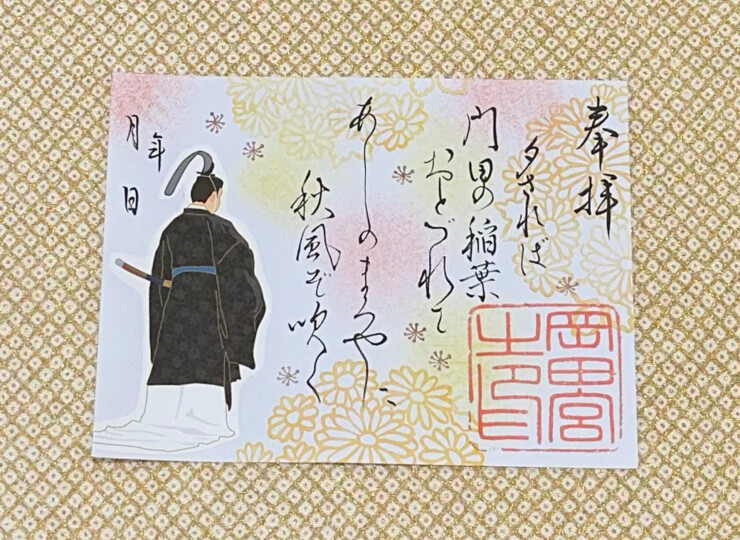 奉拝
夕されば
門田の稲葉
おとづれて
あしのまろやに
秋風ぞ吹く
年
月 日
岡田宮
之印